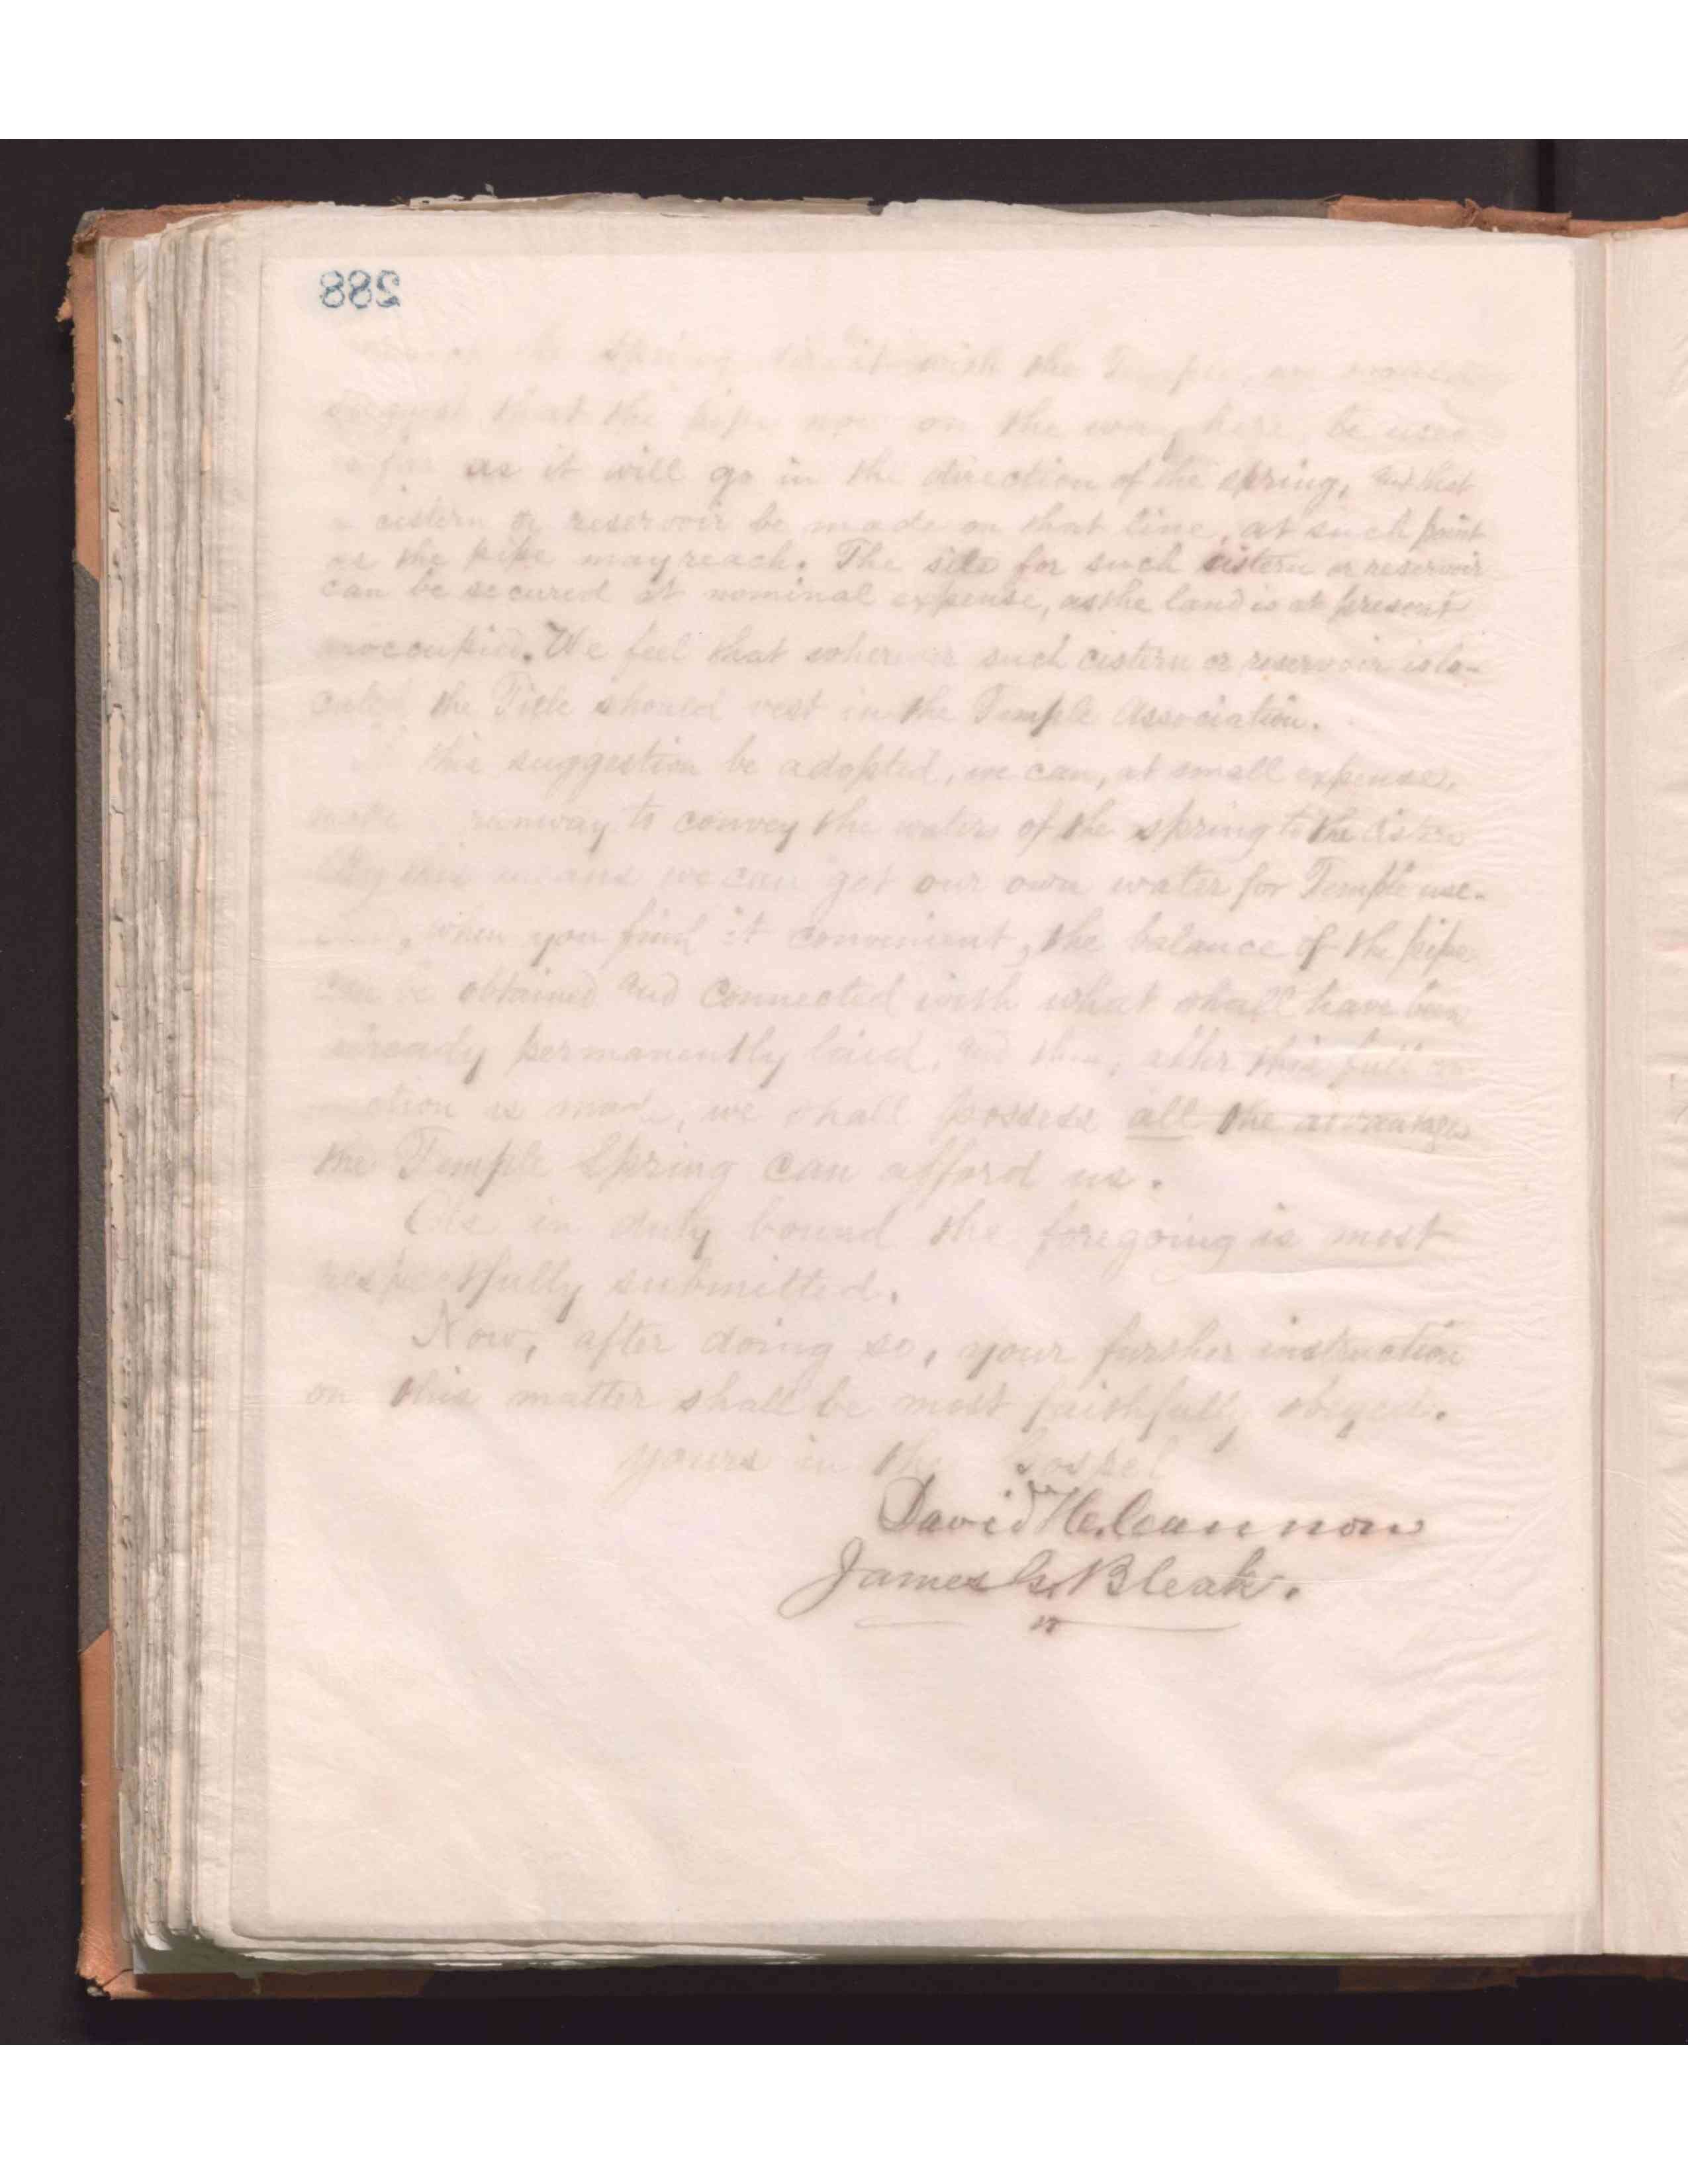 288
the spring direct with the Temple, we would
suggest that the pipe now on the way here, be used
as far as it will go in the direction of the spring, and that
a cistern or reservoir be made on that line, at such point
as the pipe may reach. The site for such cistern or reservoir
can be secured at nominal expense, as the land is at present
unoccupied. We feel that wherever such cistern or reservoir is lo-
cated the Title should vest in the Temple Association.
If this suggestion be adopted, we can, at small expense,
make runway to convey the waters of the spring to the cistern
By this means we can get our own water for Temple use.
and, when you find it convenient, the balance of the pipe
can be obtained and connected with what shall have been
already permanently laid, and then, after this full con-
nection is made, we shall possess all the advantages
the Temple Spring can afford us.
As in duty bound the foregoing is most
respectfully submitted.
Now, after doing so, your further instruction
on this matter shall be most faithfully obeyed.
yours in the Gospel
David H. Cannon
James G. Bleak.